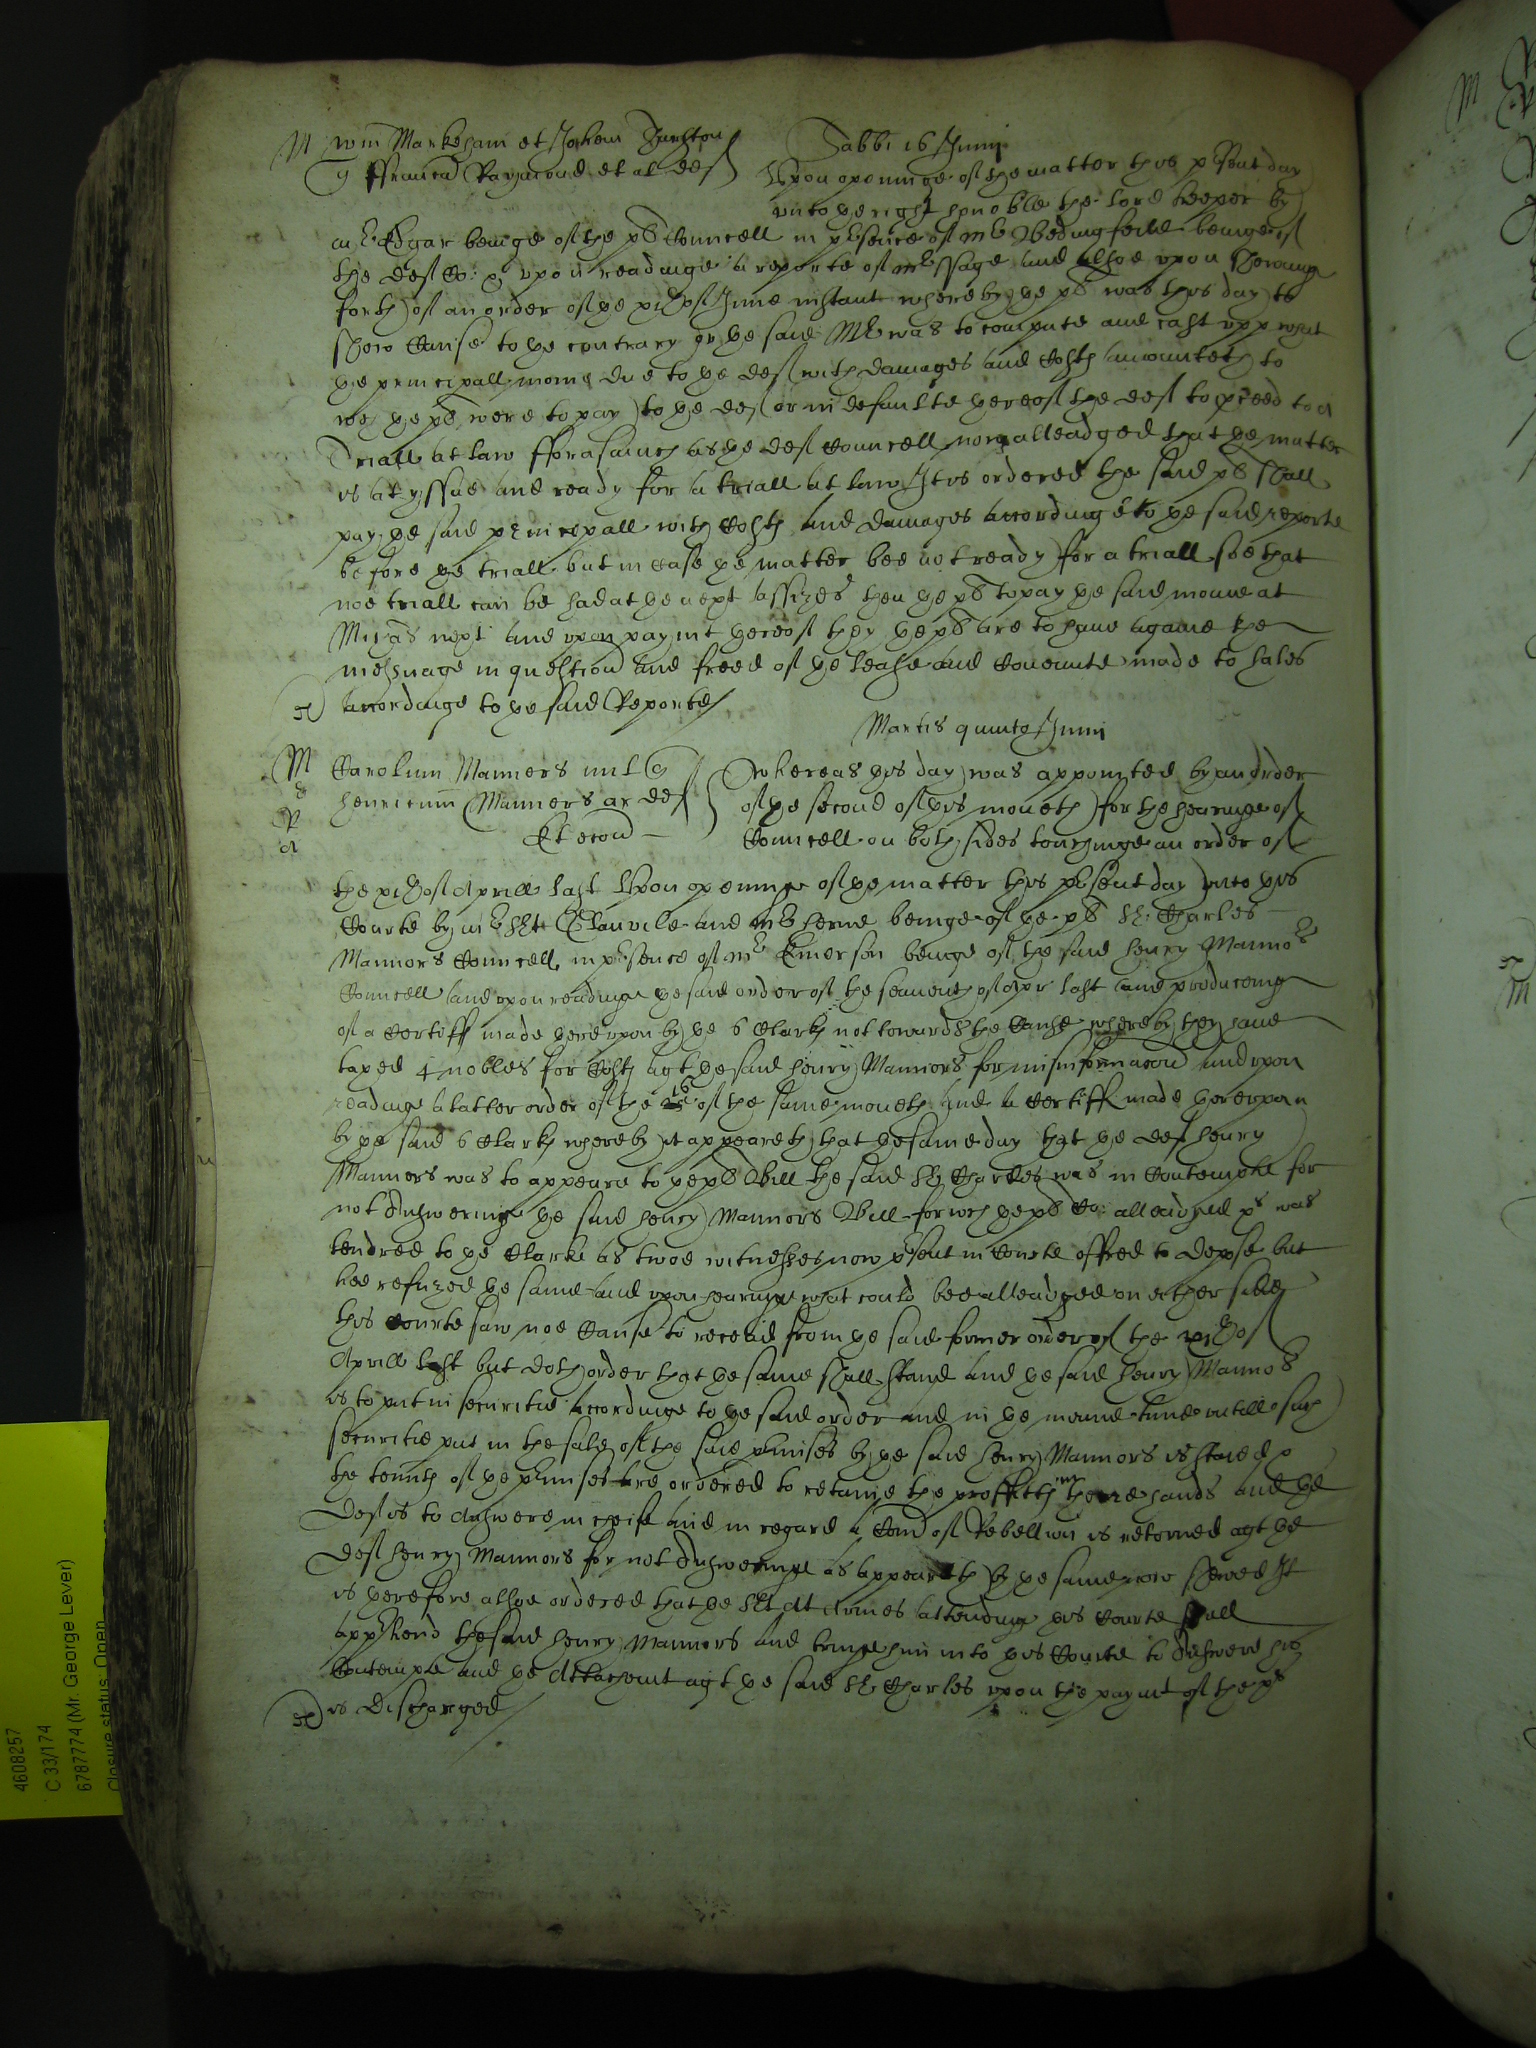 M Wm Markeham et Johem Sabbi 16 Junij
q ffrancu Raymond et al def Upon openinge of the matter this pnt day
unto the right honoble the lord keeper by
mr Edgar beinge of the pl Councell in psence of mr Bedingfeild beinge of
the def Co: & upon readinge a reporte of mr Page and alsoe upon shewing
forth of an order of the xith of June instant whereby the pl was this day to
shew Cause to the contrary why the said Mr was to compute and cast upp what
the principall money due to the def with damages and Costs amounteth to
wch the pl were to pay to the def or in defaulte thereof the def to pceed to a
Triall at law fforasmuch as the def Councell now alleadged that the matter
is at yssue and ready for a triall at law It is ordered the said pl shall
pay the said principall with Costs and damages accordinge to the said reporte
before the triall but in case the matter bee not ready for a triall soe that
noe triall can be had at the next assizes then the pl to pay the said monie at
Michas next and upon paymt thereof they the pl are to have againe the
messuage in question and freed of the lease and Covennte made to Hales
accordinge to the said Reporte
Martis quinto Junij
M Carolum Manners mil q Whereas this day was appointed by an order
R henricum Manners ar def of the second of this moneth for the hearinge of
Et econ Councell on both sides touchinge an order of
the xith of Aprill last Upon openinge of the matter this psent day unto this
Courte by mr Sjt Glanvile and mr herne beinge of the pl Sr Charles
Mannors Councell in psence of mr Emerson beinge of the said henry Mannors
Councell and upon readinge the said order of the seaventh of Apr last and produceing
of a Certiff made thereupon by the 6 Clarks not towards the Cause whereby they have
taxed 4 nobles for Costs agt the said henry Mannors for misinformacon and upon
readinge a latter order of the 16 of the same moneth and a Certiff made thereupon
by the said 6 Clarks whereby it appeareth that the same day that the def henry
Mannors was to appeare to the pl Bill the said Sr Charles was in Contempte for
not Answeringe the said henry Mannors Bill for wch the pl Co: alleadged xs was
tendred to the Clarke as twoe witnesses now psent in Courte offred to depose but
hee refuzed the same and upon hearinge what could bee alleadged on either side
this Courte saw noe Cause to receed from the said former order of the xith of
Aprill last but doth order that the same shall stand and the said henry Mannors
is to put in securitie accordinge to the said order and in the meane time untill such
securitie put in the sale of the said pmises by the said henry Mannors is staied &
the tennts of the pmises are ordered to retaine the proffitts in there hands and the
Def is to Answere in cheife and in regard a Com of Rebellion is retorned agt the
Def henry Mannors for not Answeringe as appeareth by the same now shewed It
is therefore alsoe ordered that the Sjt At Armes attending this Courte shall
apphend the said henry Mannors and bringe him into this Courte to Answere his
Contempte and the Attachmt agt the said Sr Charles upon the paymt of the xs
is discharged
4608257
C 33/174
6787774 (Mr. George Lever)
Closure status: Open
M
M